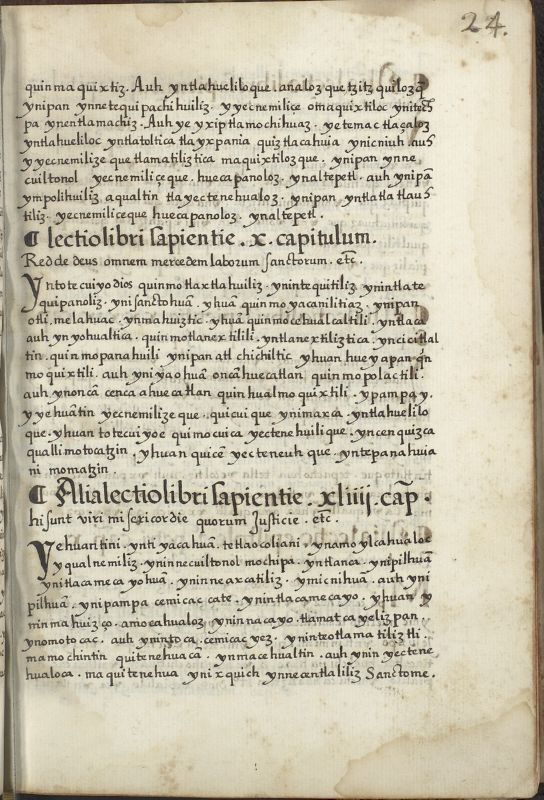 24.
quin ma quixtiz. Auh yntlahueliloque. analoz que tzitz quiloz q̄
ynipan ynnetequipachihuiliz. yyecnemilice omaquixtiloc ynitech
pa ynentlamachiz. Auh ye yxiptlamochihuaz. yetemactlaçaloz
yntlahueliloc yntlatoltica tlayxpania quiztlacahuia ynicniuh. auh
yyecnemilize que tlamatiliztica maquixtilozque. ynipan ynne
cuiltonol yecnemiliçeque. huecapanoloz. ynaltepetl. auh ynipā
ympolihuiliz. aqualtin tlayectenehualoz. ynipan yntlatlatlauh
tiliz. yecnemiliceque huecapanoloz. ynaltepetl.
¶ lectio libri sapientie. x. capitulum.
Redde deus omnem mercedem laborum sanctorum. etc̄.
Yntotecuiyo dios quinmotlaxtlahuiliz. ynintequitiliz. ynintlate
quipanoliz. ynisanctohuā. yhuā quinmoyacanilitiaz. ynipan
otli. melahuac. ynmahuiztic. yhuā quinmocehualcaltili. yntlaca
auh ynyohualtica. quinmotlanextilili. yntlanextiliztica. yncicitlal
tin. quinmopanahuili ynipan atl chichiltic yhuan hueyapan qn̄
moquixtili. auh yniyaohuā oncā huecatlan quinmopolactili.
auh ynoncā cenca ahuecatlan quinhualmoquixtili. ypampa y.
yyehuātin yecnemilizeque. quicuique ynimaxca. yntlahuelilo
que. yhuan totecuiyoe quimocuica yectenehuilique. yncenquizca
quallimotocatzin. yhuan quicē yecteneuhque. yntepanahuia
ni momatzin.
¶ Alia lectio libri sapientie. xliiij. cap̄.
hi sunt viri misericordie quorum Justicie. etc̄.
Yehuantini. ynti yacahuā. tetlaocoliani. ynamo ylcahualoc
yyqualnemiliz. yninnecuiltonol mochipa. yntlanca. ynipilhuā
ynitlacamecayohuā. yninneaxcatiliz. ynicnihuā. auh yni
pilhuā. ynipampa cemicac cate. ynintlacamecayo. yhuan y
ninmahuizço. amo cahualoz yninnacayo. tlamatcayeliz pan
ynomotocac. auh ynintoca. cemicac yez. yninteotlamatiliztli.
mamochintin quitenehuacā. ynmacehualtin. auh ynin yectene
hualoca. ma quitenehua ynixquich ynnecentlaliliz Sanctome.